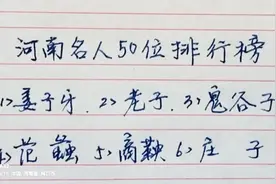 河南名人50位排行榜
1>姜子牙. 2>老子. 3>鬼谷子
4>范蠡 5>商鞅 6>庄 子